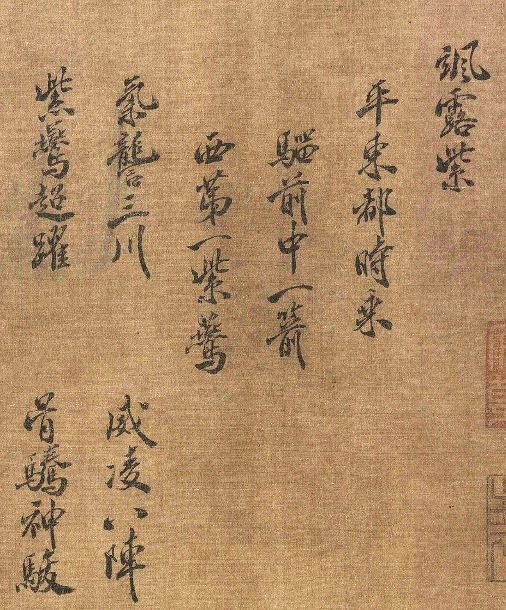 紫鷰超躍
骨騰神駿
氣讋三川
威凌八陣
西第一紫鷰
騮前中一箭
平東都時乘
颯露紫